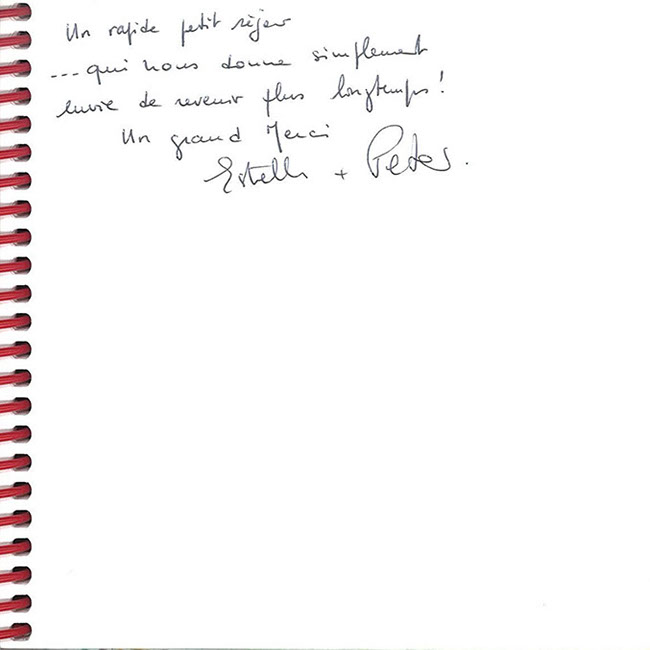 Un rapide petit séjour
... qui nous donne simplement
envie de revenir plus longtemps !
Un grand Merci
Estelle + Peter.